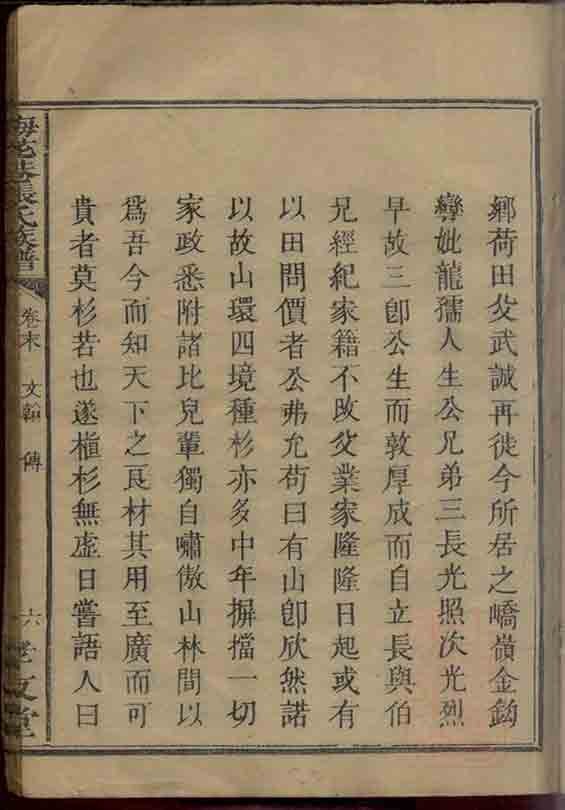 鄉荷田父武誠再徙今所居之嶠嶺金鈎
孿妣龍孺人生公兄弟三長光照次光烈
早故三卽公生而敦厚成而自立長與伯
兄經紀家籍不改父業家隆隆日起或有
以田問價者公弗允苟曰有山卽欣然諾
以故山環四境種杉亦多中年摒擋一切
家政悉附諸比兒輩獨自嘯傲山林間以
爲吾今而知天下之良材其用至廣而可
貴者莫杉若也遂植杉無虛日嘗語人曰
梅花巷張氏族譜
卷末
文翰
傳
六
文堂